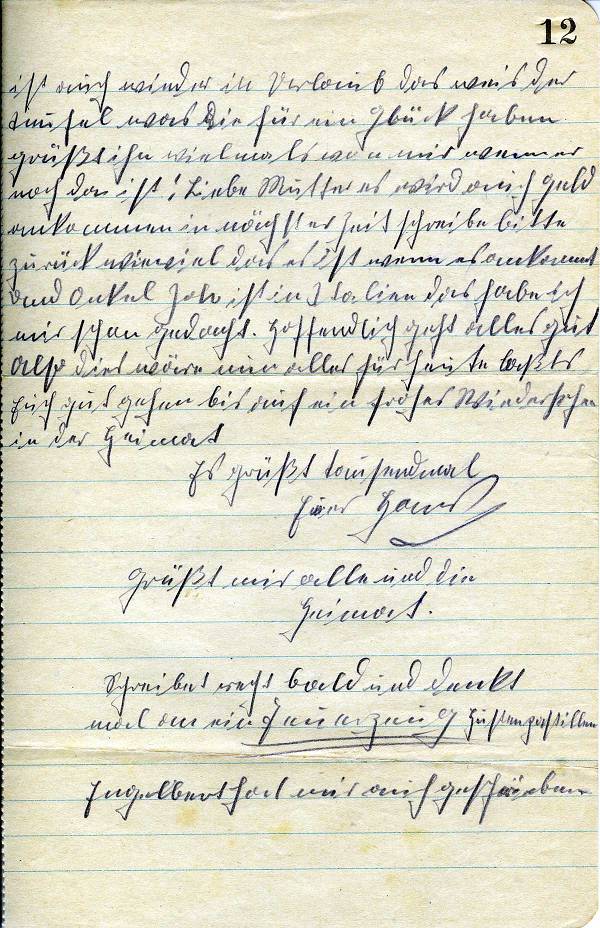 12
ist auch wieder in Urlaub das weis der
teufel was die für ein Glück haben.
grüßt ihn vielmals von mir wenn er
noch da ist! Liebe Mutter es wird auch geld
ankommen in nächster zeit schreibe bitte
zurück wieviel das es ist wenn es ankommt
und Onkel ist in Italien das habe ich
mir schon gedacht. Hoffendlich geht alles gut
also dies wäre nun alles für heute laßts
Euch gut gehen bis auf ein frohes Wiedersehen
in der Heimat
Es grüßt tausendmal
Euer Hans
Grüßt mir alle und die
Heimat.
Schreibet recht bald und denkt
mal an ein Feuerzeug Hustenpastillen
Engelbert hat mir auch geschrieben